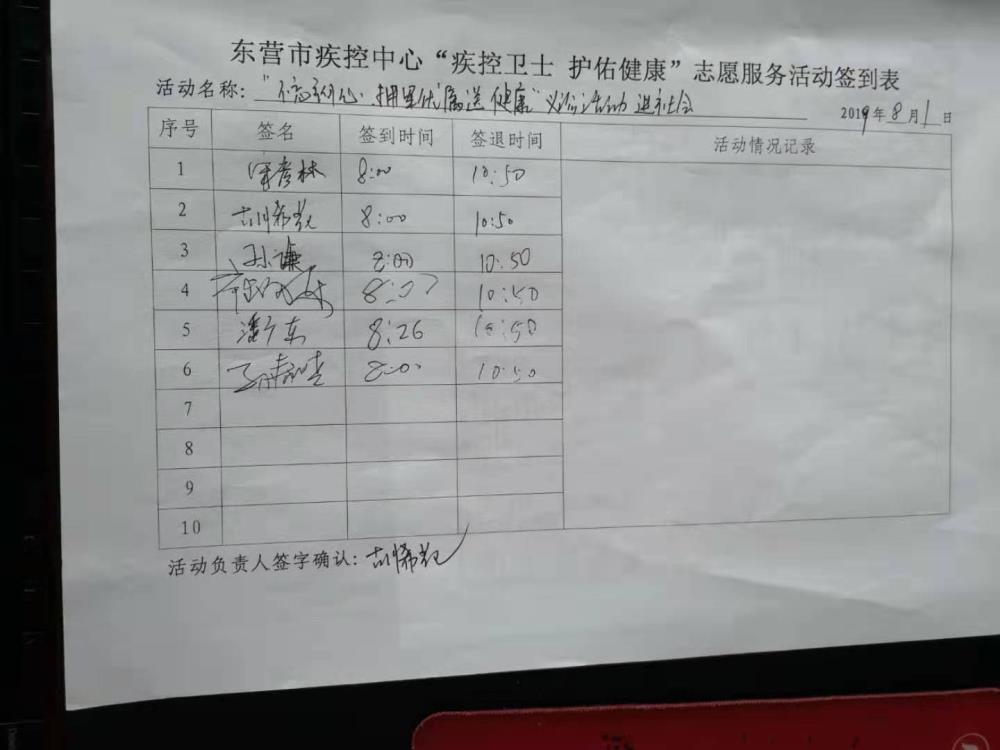 东营市疾控中心“疾控卫士 护佑健康”志愿服务活动签到表
活动名称："不忘初心·拥军优属送健康"义诊活动进社会 2019年8月1日
序号 签名 签到时间 签退时间 活动情况记录
1 8:00 10:50
2 8:00 10:50
3 孙谦 8:00 10:50
4 8:07 10:50
5 潘广东 8:26 10:50
6 8:00 10:50
7
8
9
10
活动负责人签字确认：